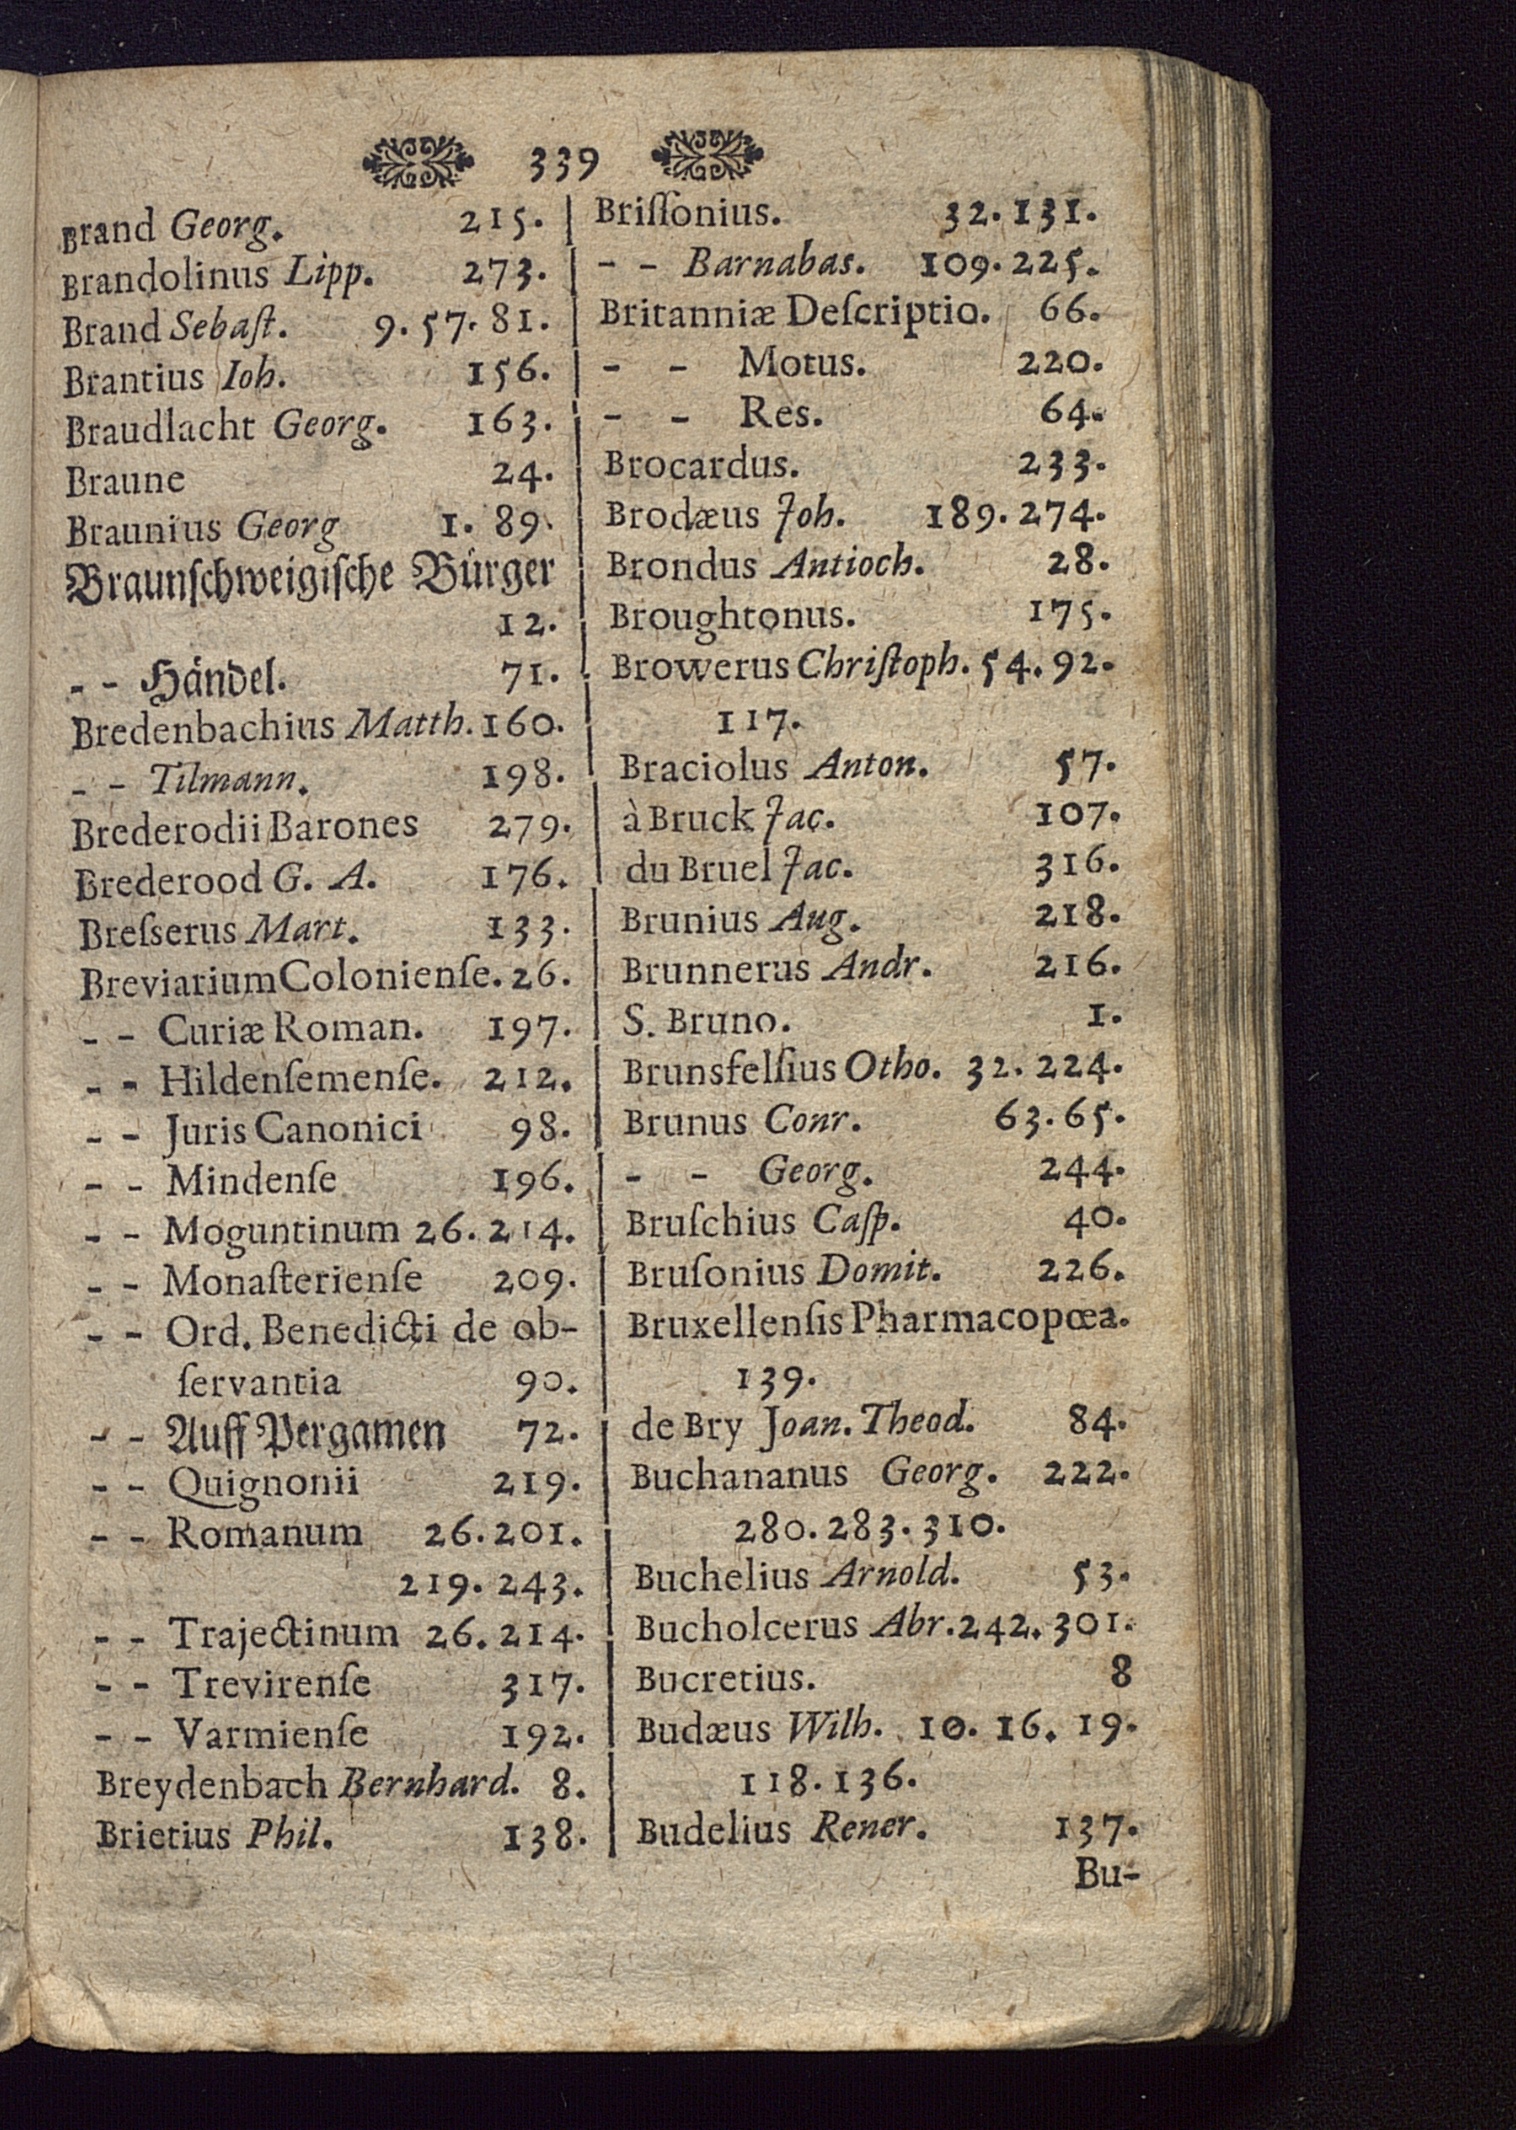 339
Brand Georg. 215.
Brandolinus Lipp. 273.
Brand Sebaſt. 9. 57. 81.
Brantius Ioh. 156.
Braudlacht Georg. 163.
Braune 24.
Braunius Georg 1. 89.
Braunſchweigiſche Bürger
12.
- - Händel. 71.
Bredenbachius Matth. 160.
- - Tilmann. 198.
Brederodii Barones 279.
Brederood G. A. 176.
Breſserus Mart. 133.
Breviarium Colonienſe. 26.
- - Curiæ Roman. 197.
- - Hildenſemenſe. 212.
- - Juris Canonici 98.
- - Mindenſe 196.
- - Moguntinum 26. 214.
- - Monaſterienſe 209.
- - Ord. Benedicti de ob-
ſervantia 90.
- - Auff Pergamen 72.
- - Quignonii 219.
- - Romanum 26. 201.
219. 243.
- - Trajectinum 26. 214.
- - Trevirenſe 317.
- - Varmienſe 192.
Breydenbach Bernhard. 8.
Brietius Phil. 138.
Briſſonius. 32. 131.
- - Barnabas. 109. 225.
Britanniæ Deſcriptio. 66.
- - Motus. 220.
- - Res. 64.
Brocardus. 233.
Brodæus Joh. 189. 274.
Brondus Antioch. 28.
Broughtonus. 175.
Browerus Chriſtoph. 54. 92.
117.
Braciolus Anton. 57.
à Bruck Jac. 107.
du Bruel Jac. 316.
Brunius Aug. 218.
Brunnerus Andr. 216.
S. Bruno. 1.
Brunsfelſius Otho. 32. 224.
Brunus Conr. 63. 65.
- - Georg. 244.
Bruſchius Caſp. 40.
Bruſonius Domit. 226.
Bruxellenſis Pharmacopœa.
139.
de Bry Joan. Theod. 84.
Buchananus Georg. 222.
280. 283. 310.
Buchelius Arnold. 53.
Bucholcerus Abr. 242. 301.
Bucretius. 8
Budæus Wilh. 10. 16. 19.
118. 136.
Budelius Rener. 137.
Bu-